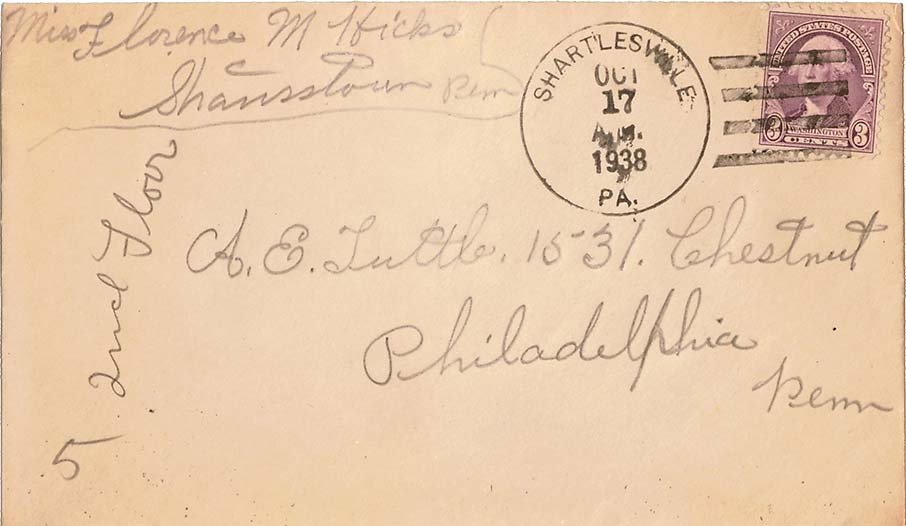 Miss Florence M Hicks
Shartlesville
OCT
17
A.M.
1938
PA.
UNITED STATES POSTAGE
3 WASHINGTON 3
CENTS
Penn
A. E. Tuttle. 1531. Chestnut
Philadelphia
Penn
2nd Floor
5